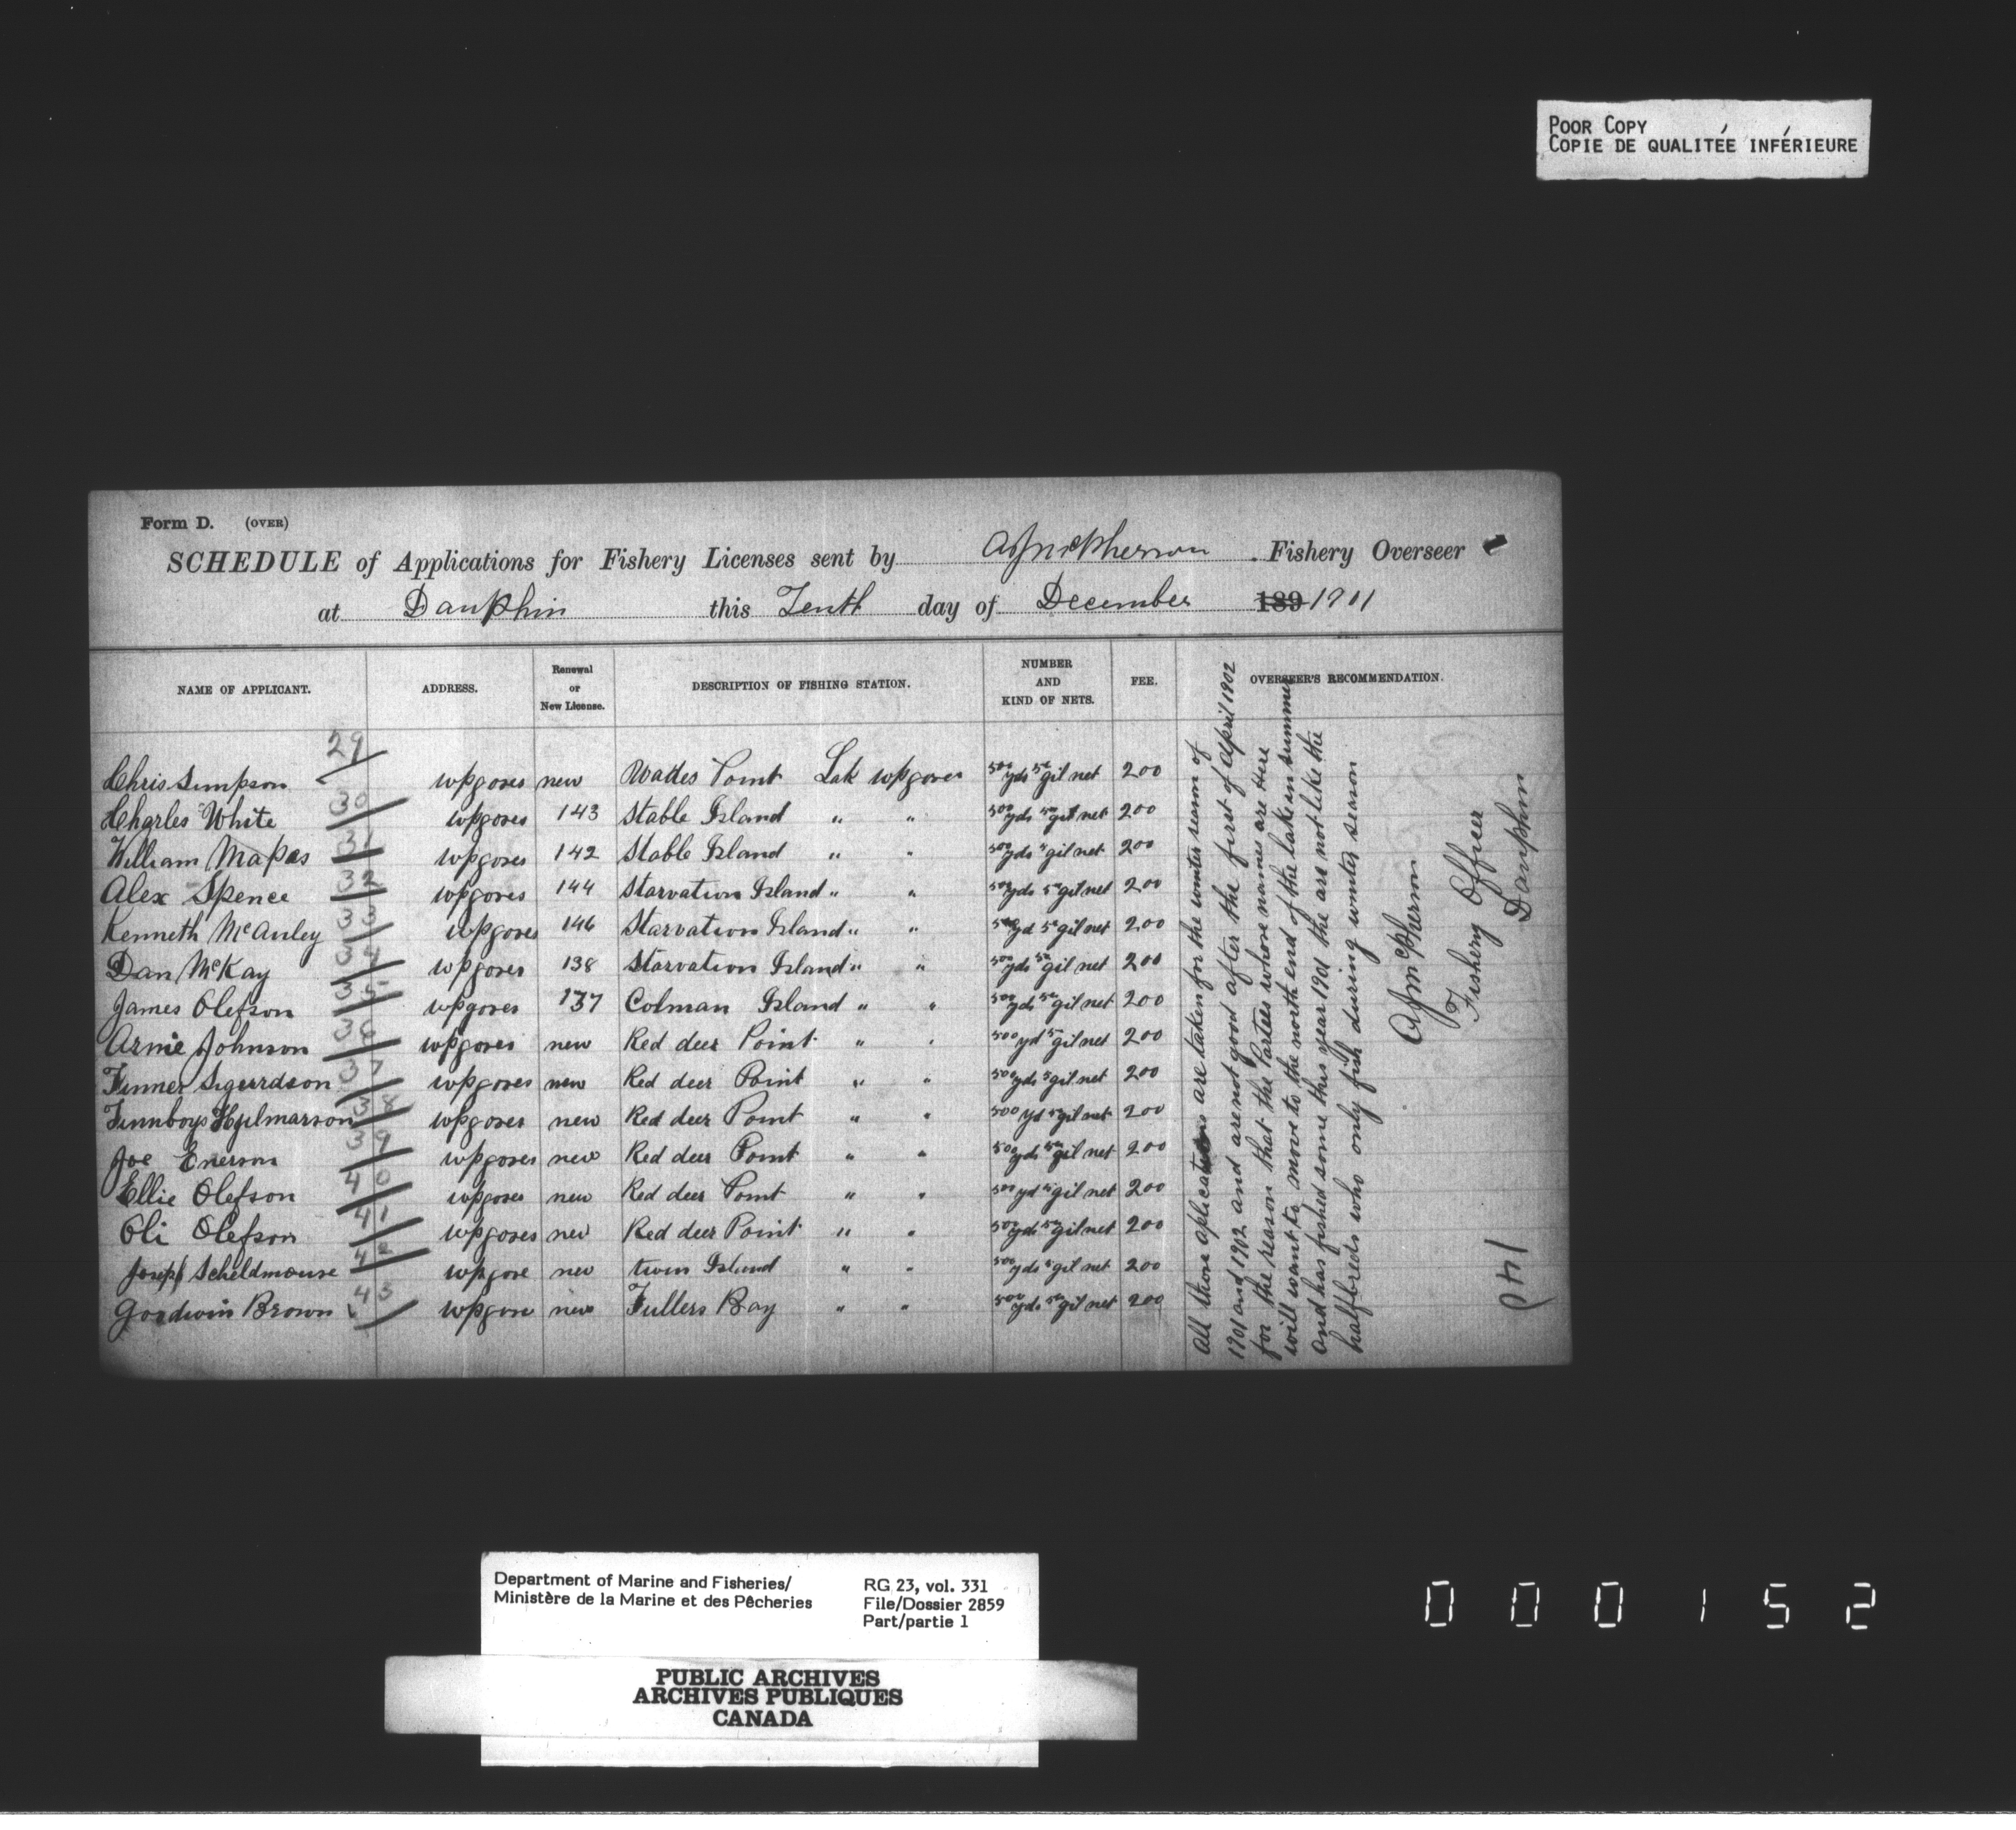 POOR COPY
COPIE DE QUALITÉE INFÉRIEURE
Form D. (OVER)
SCHEDULE of Applications for Fishery Licenses sent by A J McPherson Fishery Overseer
at Dauphin this Tenth day of December 189 1901
NAME OF APPLICANT. ADDRESS. Renewal or New License. DESCRIPTION OF FISHING STATION. NUMBER AND KIND OF NETS. FEE. OVERSEER'S RECOMMENDATION.
29
Chris Simpson wpgoses new Wattes Point Lak wpgoses 500 yds 5in gil net 200
Charles White 30 wpgoses 143 Stable Island " " 500 yds 5in gil net 200
William Mapes 31 wpgoses 142 Stable Island " " 500 yds 5 gil net 200
Alex Spence 32 wpgoses 144 Starvation Island " " 500 yds 5in gil net 200
Kenneth McAuley 33 wpgoses 146 Starvation Island " " 500 yd 5in gil net 200
Dan McKay 34 wpgoses 138 Starvation Island " " 500 yds 5in gil net 200
James Olefson 35 wpgoses 137 Colman Island " " 500 yds 5in gil net 200
Arnie Johnson 36 wpgoses new Red deer Point " " 500 yd 5in gil net 200
Finner Sigurdson 37 wpgoses new Red deer Point " " 500 yds 5 gil net 200
Finnboys Hjelmarson 38 wpgoses new Red deer Point " " 500 yd 5in gil net 200
Joe Enerson 39 wpgoses new Red deer Point " " 500 yds 5in gil net 200
Ellie Olefson 40 wpgoses new Red deer Point " " 500 yd 5in gil net 200
Oli Olefson 41 wpgoses new Red deer Point " " 500 yds 5in gil net 200
Joseph Scheldmouse 42 wpgose new twin Island " " 500 yds 5 gil net 200
Goodwin Brown 43 wpgose new Fullers Bay " " 500 yds 5in gil net 200
All those aplications are taken for the winter season of
1901 and 1902 and are not good after the first of April 1902
for the reason that the Parties whose names are Here
will want to move to the north end of the lake in summer
and has fished some this year 1901 the are not like the
halfbreeds who only fish during winter season
A J McPherson
Fishery Officer
Dauphin
141
Department of Marine and Fisheries/
Ministère de la Marine et des Pêcheries
RG 23, vol. 331
File/Dossier 2859
Part/partie 1
PUBLIC ARCHIVES
ARCHIVES PUBLIQUES
CANADA
000152